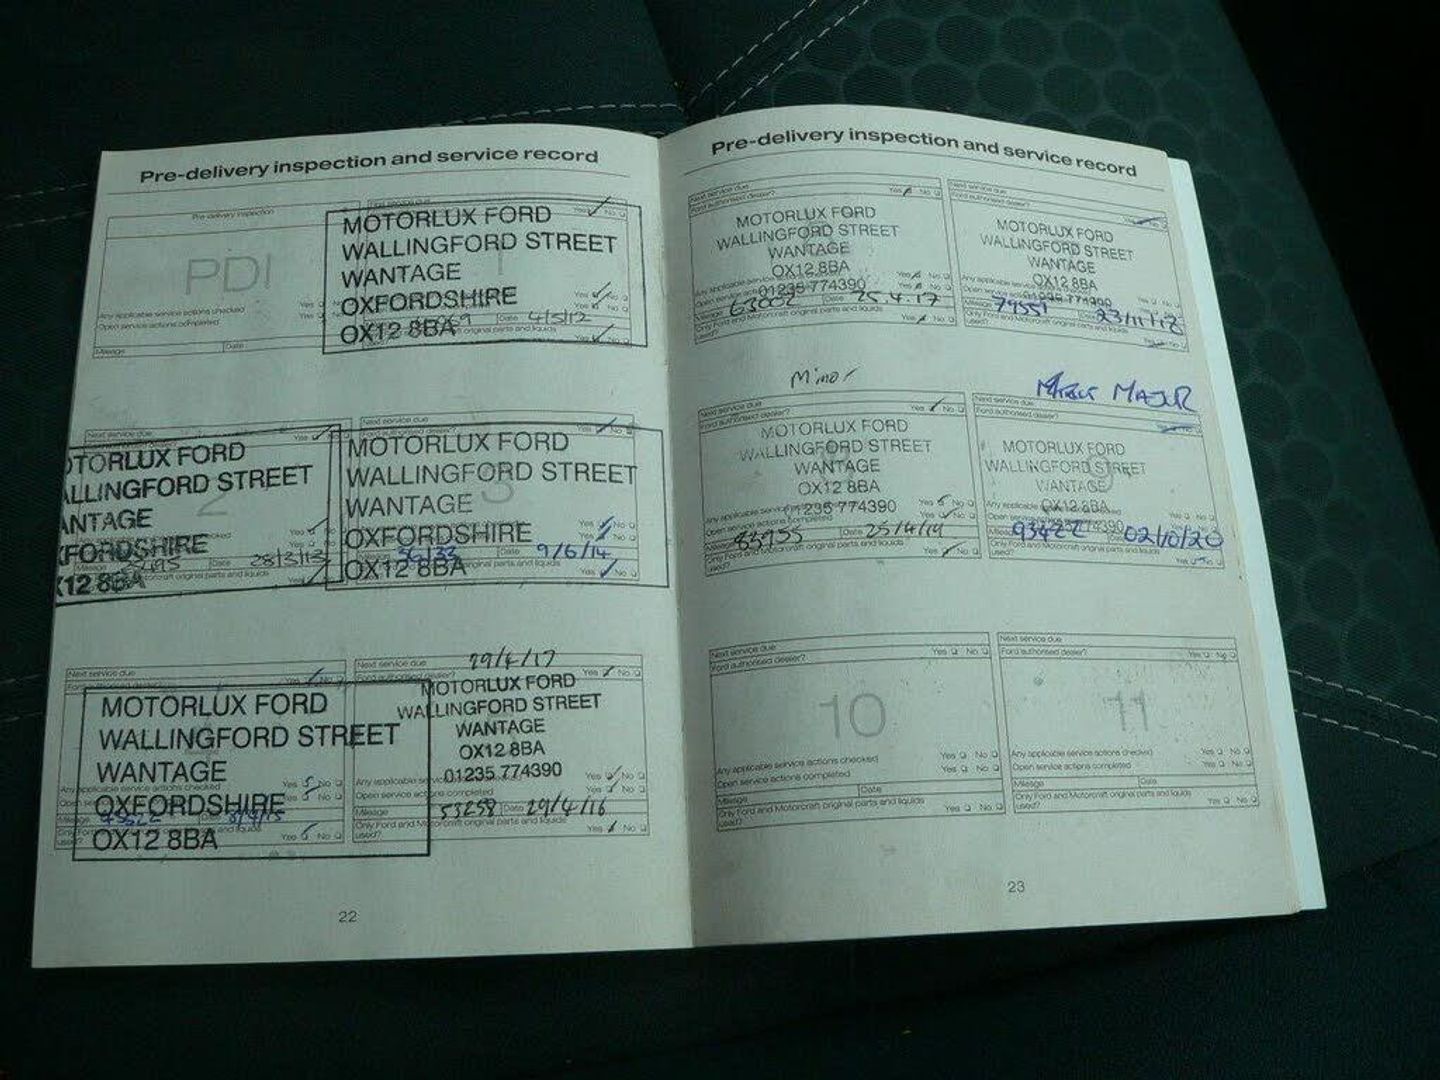 Pre-delivery inspection and service record
Pre-delivery inspection
PDI
Any applicable service actions checked Yes No
Open service actions completed Yes
Mileage Date
1
MOTORLUX FORD
WALLINGFORD STREET
WANTAGE
OXFORDSHIRE
OX12 8BA
Yes No
Yes No
Yes No
Date 4/5/12
original parts and liquids
Yes No
Next service due
2
Yes
OTORLUX FORD
ALLINGFORD STREET
ANTAGE
FORDSHIRE
X12 8BA
Yes
Yes
Date 28/3/13
original parts and liquids
Next service due
3
Yes No
MOTORLUX FORD
WALLINGFORD STREET
WANTAGE
OXFORDSHIRE
OX12 8BA
Yes No
Mileage 36133 Date 9/6/14
original parts and liquids
Yes No
Next service due
Ford authorised dealer? Yes No
MOTORLUX FORD
WALLINGFORD STREET
WANTAGE
OXFORDSHIRE
OX12 8BA
Any applicable service actions checked Yes No
Yes No
Mileage
and liquids
used? Yes No
Next service due 29/4/17
Ford authorised dealer? Yes No
MOTORLUX FORD
WALLINGFORD STREET
WANTAGE
OX12 8BA
01235 774390
Any applicable Yes No
Open service actions completed Yes No
Mileage 53258 Date 29/4/16
Only Ford and Motorcraft original parts and liquids
used? Yes No
22
Pre-delivery inspection and service record
Next service due
Ford authorised dealer? Yes No
MOTORLUX FORD
WALLINGFORD STREET
WANTAGE
OX12 8BA
01235 774390
Any applicable service Yes No
Open service
Mileage 63002 Date 25.4.17
Only Ford and Motorcraft original parts and liquids
used? Yes No
Next service due
Ford authorised dealer?
No
MOTORLUX FORD
WALLINGFORD STREET
WANTAGE
OX12 8BA
01235 774390
Any applicable service Yes No
Open service
Mileage Date
Only Ford and Motorcraft original parts and liquids
used? Yes No
Minor
Next service due
Ford authorised dealer? Yes No
MOTORLUX FORD
WALLINGFORD STREET
WANTAGE
OX12 8BA
01235 774390
Any applicable service Yes No
Open service actions completed Yes No
Mileage 83955 Date 25/4/19
Only Ford and Motorcraft original parts and liquids
used? Yes No
MAJOR
Next service due
Ford authorised dealer?
MOTORLUX FORD
WALLINGFORD STREET
WANTAGE
OX12 8BA
Any applicable Yes No
Open service Yes No
Mileage 93422 02/10/20
Only Ford and Motorcraft original parts and liquids
used? Yes No
Next service due
Ford authorised dealer? Yes No
10
Any applicable service actions checked Yes No
Open service actions completed Yes No
Mileage Date
Only Ford and Motorcraft original parts and liquids
used? Yes No
Next service due
Ford authorised dealer? Yes No
11
Any applicable service actions checked Yes No
Open service actions completed Yes No
Mileage Date
Only Ford and Motorcraft original parts and liquids
used? Yes No
23